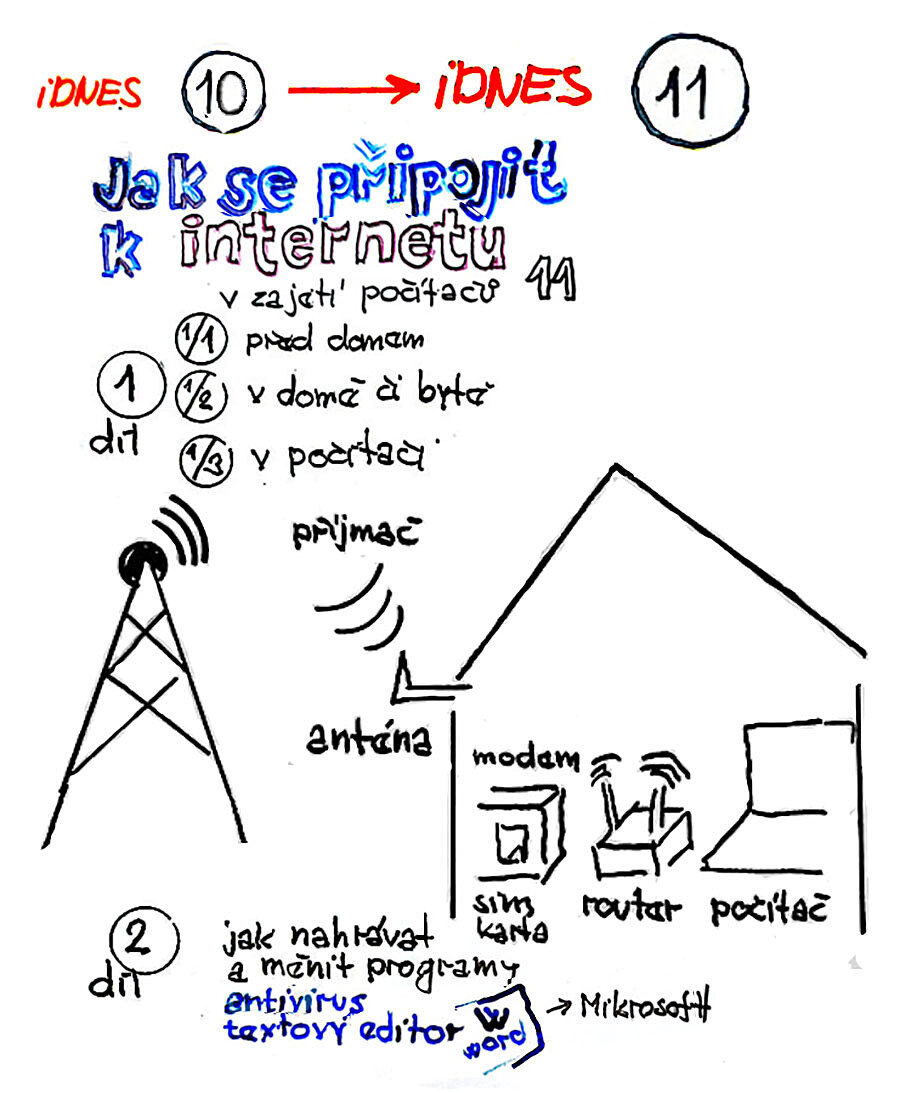 iDNES 10 → iDNES 11
Jak se připojit
k internetu
v zajetí počítačů 11
1/1 před domem
1 díl
1/2 v domě či bytě
1/3 v počítači
příjmač
anténa
modem
sim karta
router
počítač
2 díl
jak nahrávat
a měnit programy
antivirus
textový editor W word → Mikrosoft